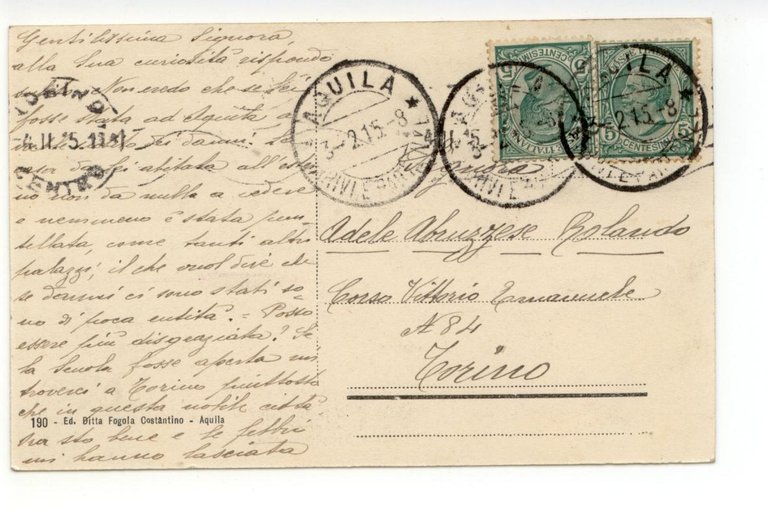 Gentilissima Signora,
alla Sua curiosità rispondo
subito. Non credo che se Lei
fosse stata ad Aquila a
dei danni. La
casa da Lei abitata all'ester
no non dà nulla a vedere
e nemmeno è stata pun
tellata, come tanti altri
palazzi; il che vuol dire che
se danni ci sono stati so
no di poca entità. - Posso
essere più disgraziata? Se
la Scuola fosse aperta mi
troverei a Torino piuttosto
che in questa nobile città.
Ora sto bene e le febbri
mi hanno lasciata
190 - Ed. Ditta Fogola Costantino - Aquila
4.II.15
AQUILA
3-2.15-8
ARRIVI E
AQUILA
3-2.15-8
ARRIVI E
CENTESIMI
5
CENTESIMI
5
Signora
Adele Abruzzese Rolando
Corso Vittorio Emanuele
N 84
Torino